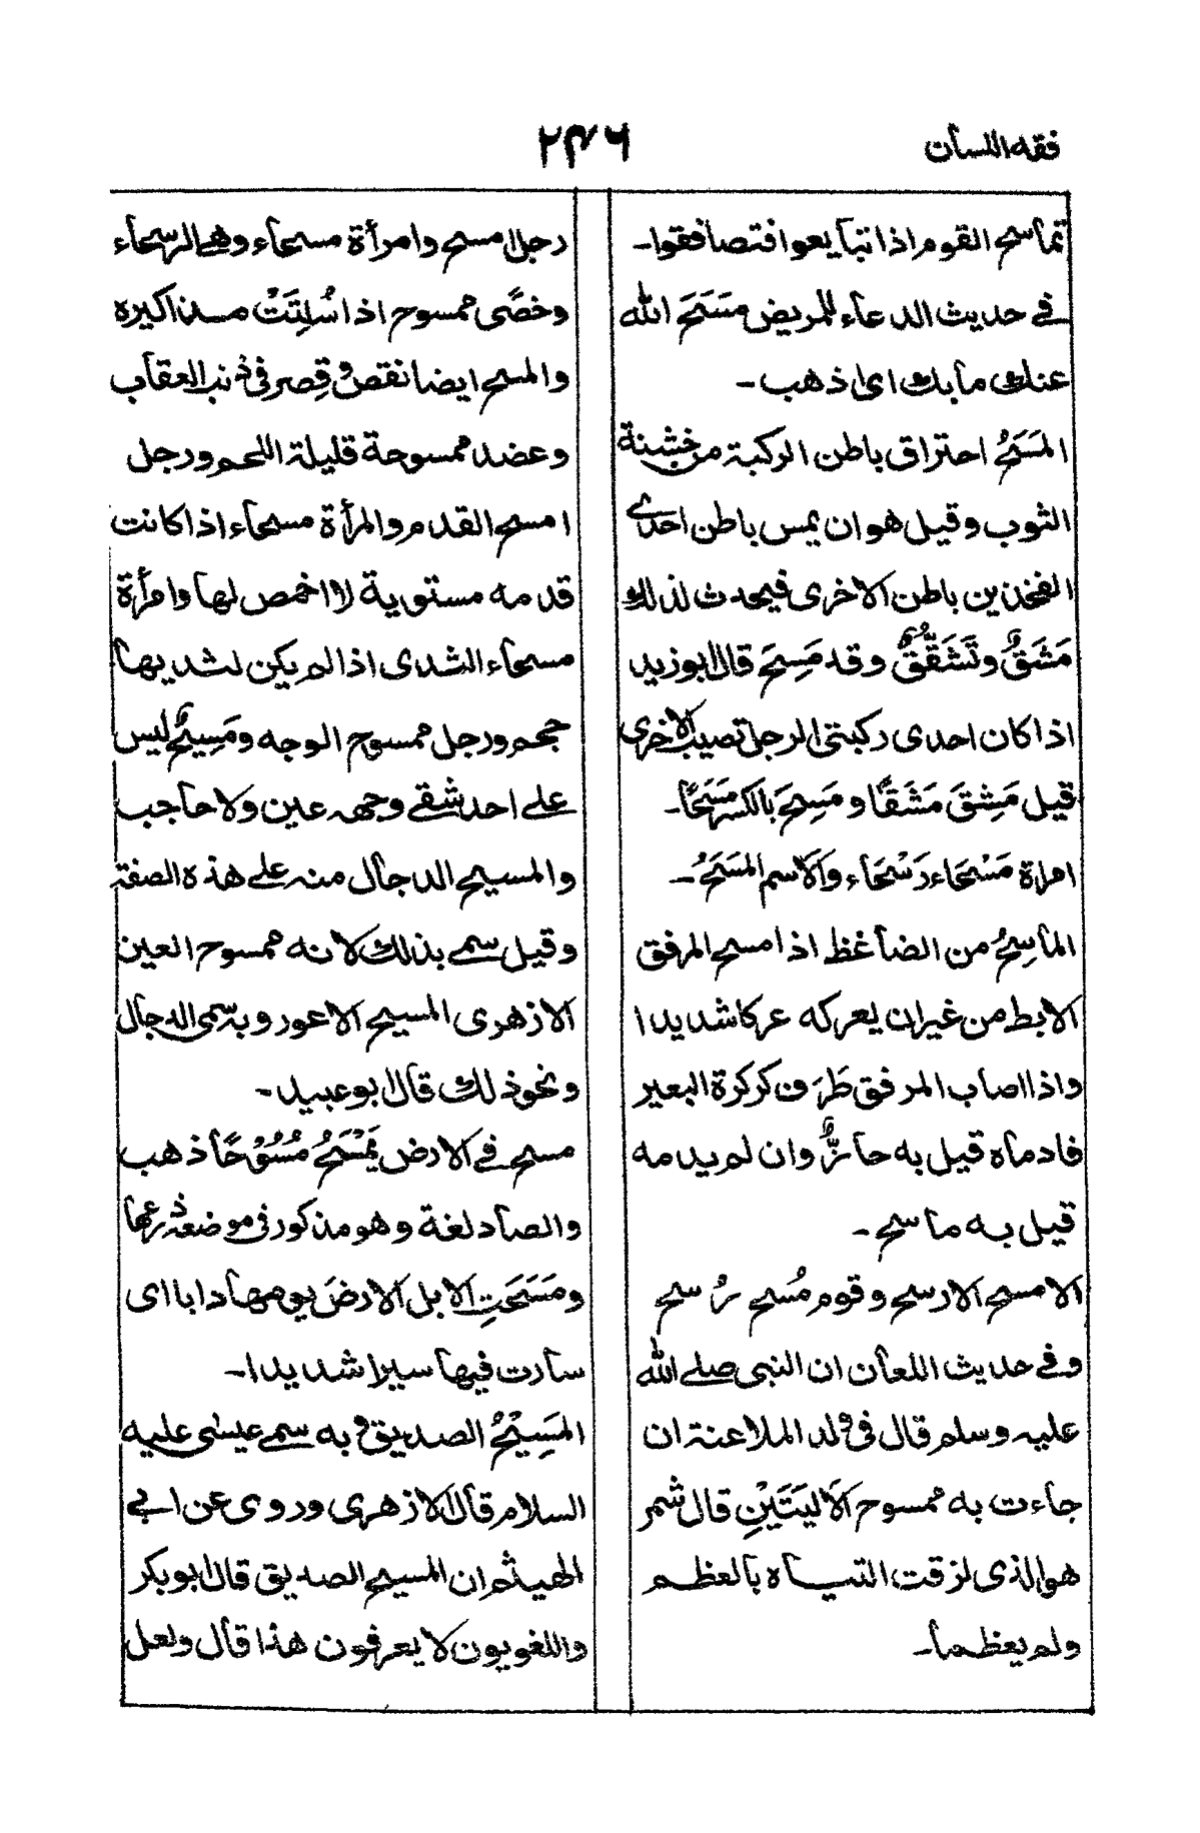 فقه اللسان
٢٣٦
تماسح القوم اذا تبايعوا فتصافقوا۔
فے حديث الدعاء للمريض مَسَحَ الله
عنك مابك اى اذهب۔
المَسَحُ احتراق باطن الركبة من خشنة
الثوب وقيل هو ان يمس باطن احدے
الفخذين باطن الاخرى فيحدث لذلك
مَشَقٌ وتَشَقُّقٌ وقد مَسِحَ قال ابوزيد
اذا كان احدى ركبتى الرجل تصيب الاخرى
قيل مَشِقَ مَشَقًا ومَسِحَ بالكسر مَسَحًا۔
امراة مَسْحَاء رَسْحَاء والاسم المَسَحُ۔
الماسِحُ من الضاغظ اذا مسح المرفق
الابط من غير ان يعركه عركا شديدا
واذا اصاب المرفق طَرَف كركرة البعير
فادماه قيل به حازٌّ وان لم يدمه
قيل به ماسح۔
الامسح الارسح وقوم مُسح رُسح
وفے حديث اللعان ان النبى صلے الله
عليه وسلم قال فى ولد الملاعنة ان
جاءت به ممسوح الاليَتَيْنِ قال شمر
هو الذى لزقت التياه بالعظم
ولم يعظما۔
رجل امسح وامرأة مسحاء وهے الرسحاء
وخصًى ممسوح اذا سُلِتَتْ مذاكيره
والمسح ايضا نقص وقِصر فى ذنب العقاب
وعضد ممسوحة قليلة اللحم ورجل
امسح القدم والمرأة مسحاء اذا كانت
قدمه مستوية لا اخمص لها وامرأة
مسحاء الثدى اذا لم يكن لثديها
حجم ورجل ممسوح الوجه ومَسِيحٌ ليس
علے احد شقے وجهه عين ولا حاجب
والمسيح الدجال منه علے هذه الصفة
وقيل سمے بذلك لانه ممسوح العين
الازهرى المسيح الاعور وبه سمى الدجال
ونحو ذلك قال ابوعبيد۔
مسح فے الارض يَمْسَحُ مُسُوْحًا ذهب
والصاد لغة وهو مذكور فى موضعه
ومَسَحَتِ الابل الارضَ يومها دابا اى
سارت فيها سيرا شديدا۔
المَسِيْحُ الصديق وبه سمے عيسٰى عليه
السلام قال الازهرى وروى عن ابے
الهيثم ان المسيح الصديق قال ابوبكر
واللغويون لا يعرفون هذا قال ولعل